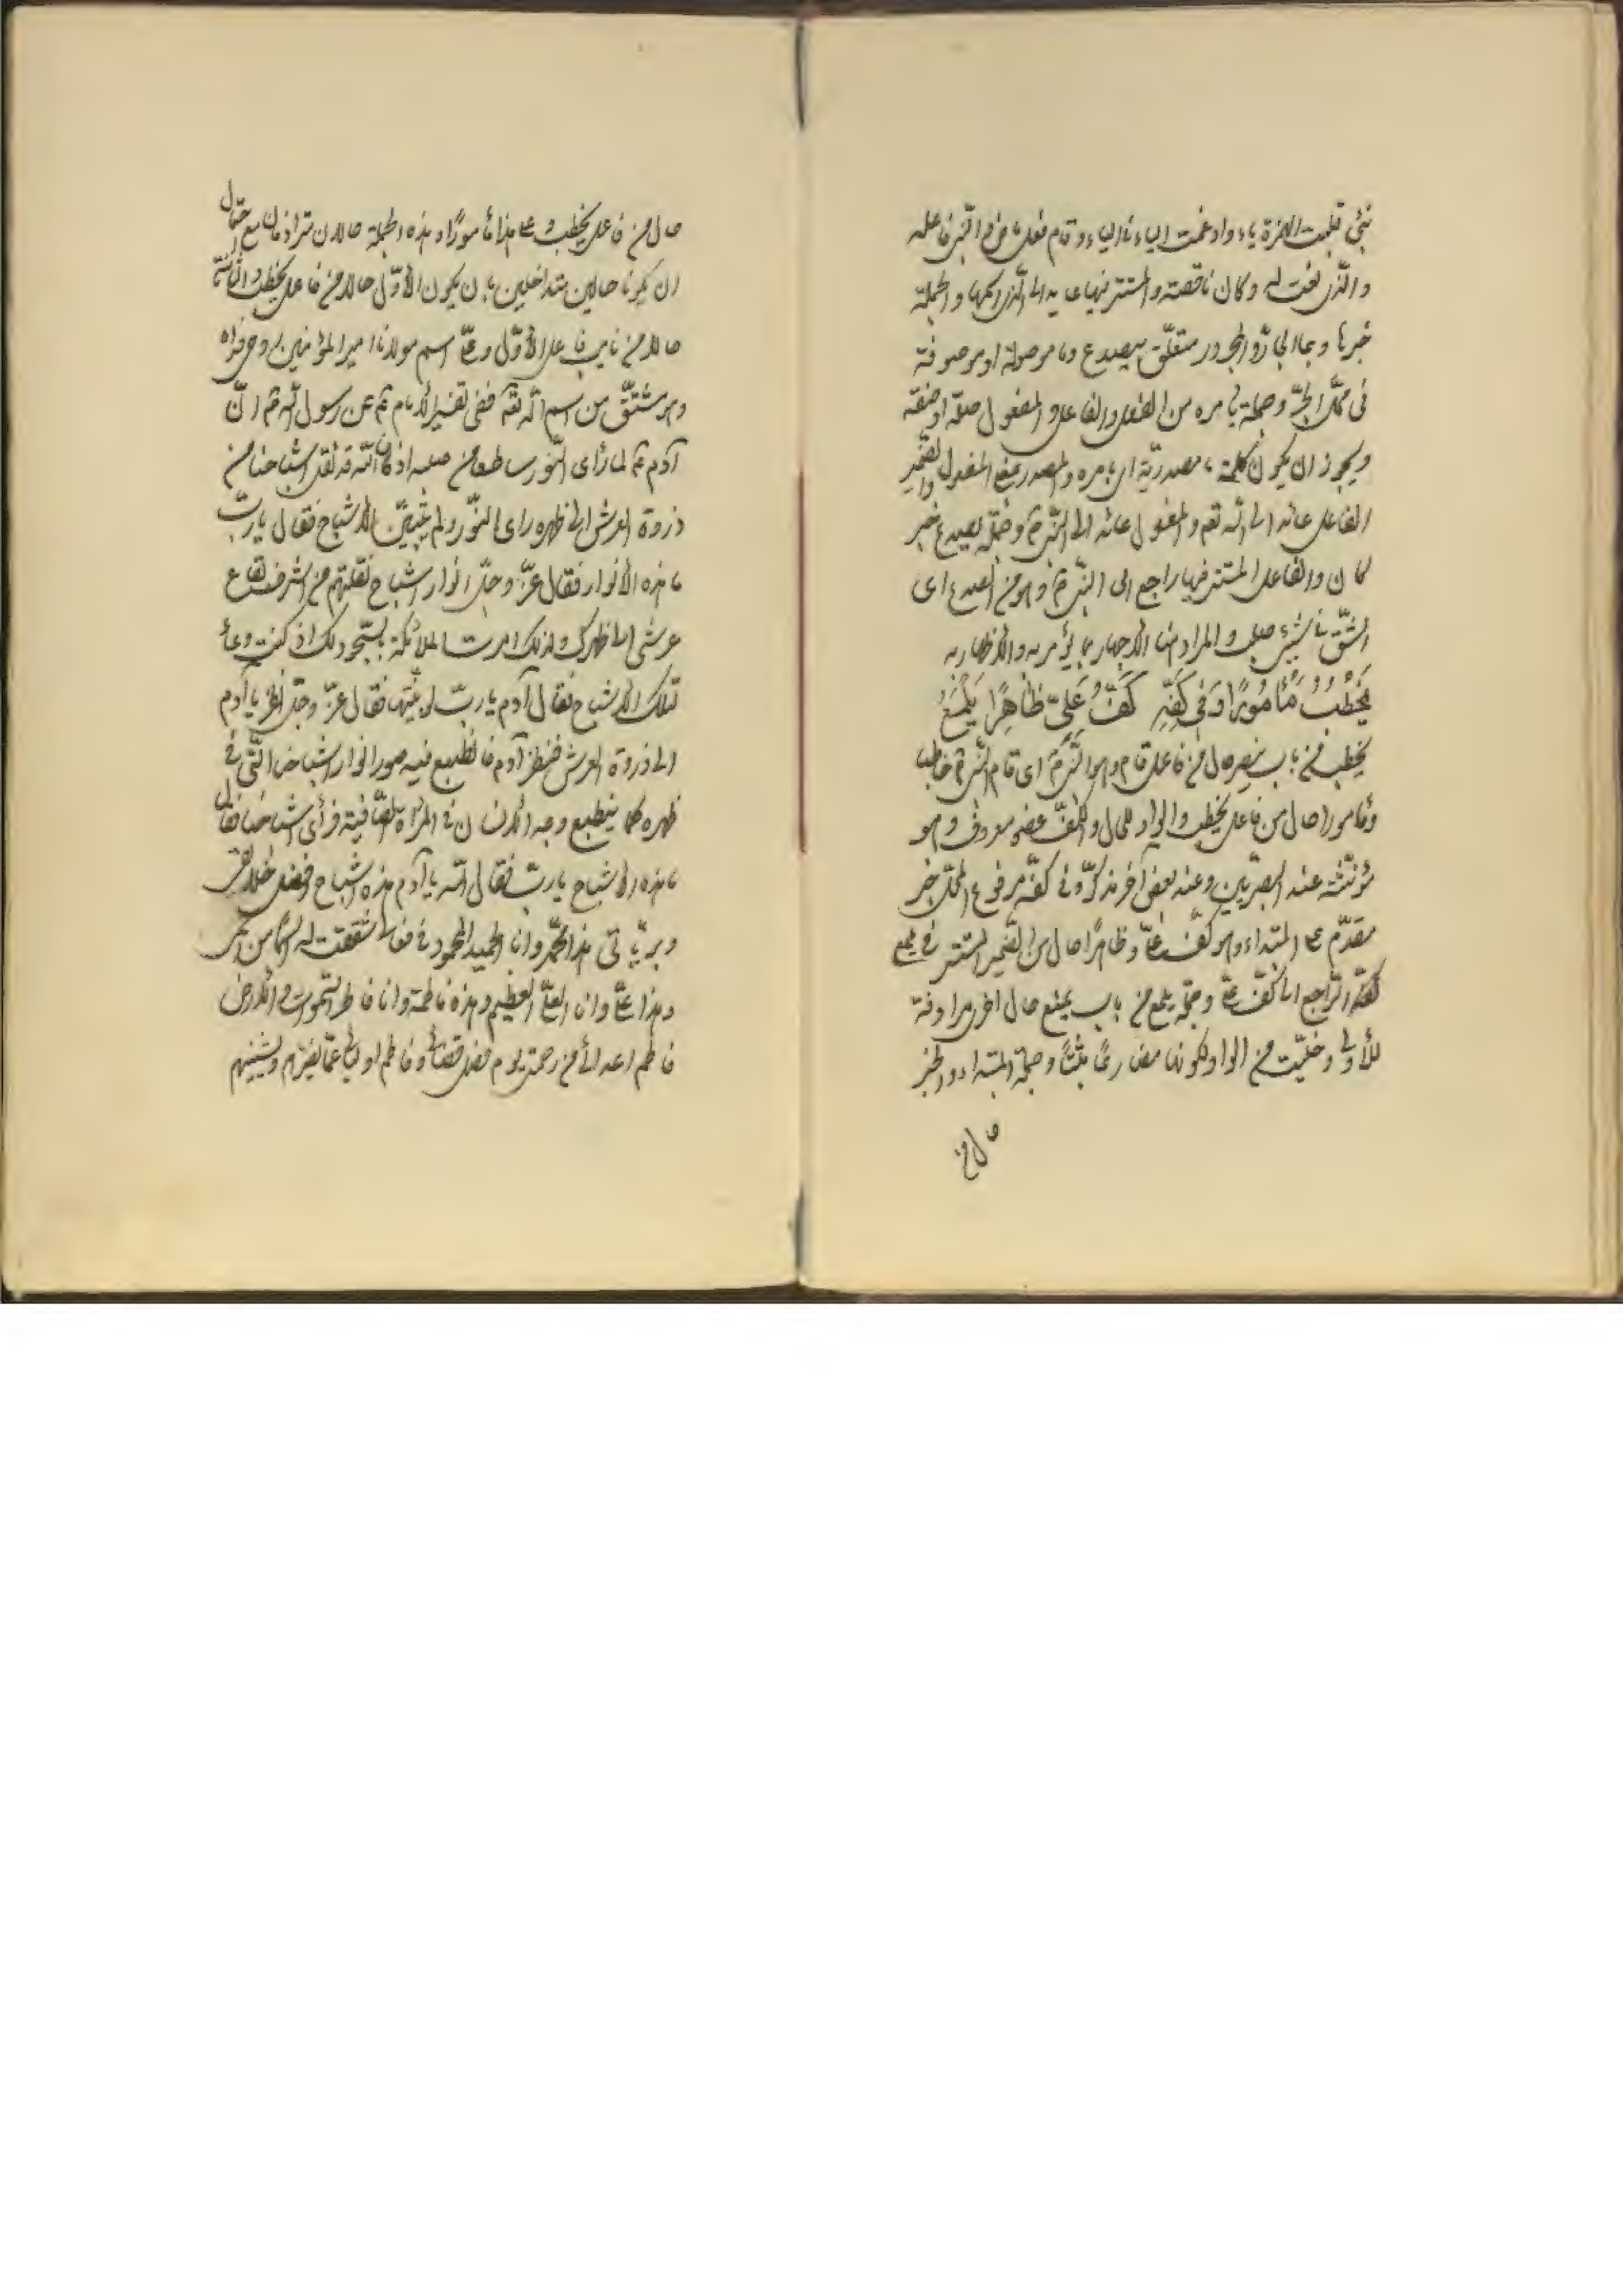 نبئ قلبت الهمزة ياء وادغمت الياء فى الياء وقام فعل ماض والنبى فاعله
والذى نعت له وكان ناقصة والمستتر فيها عايد الى الذى اسمها والجملة
خبرها وبما الجار والمجرور متعلق بيصدع وما موصولة او موصوفة
فى محل الجر وجملة يامره من الفعل والفاعل والمفعول صلة او صفة
ويجوز ان يكون كلمة ما مصدرية اى بامره والمصدر بمعنى المفعول والضمير
الفاعل عائد الى الله تعم والمفعول عائد الى النبى ص وجملة يصدع خبر
كان والفاعل المستتر فيها راجع الى النبى ص وهو من الصدع اى
الشق فى شىء صلب والمراد هنا الاجهار بما يؤمر به والاظهار به
يَخْطُبُ مَأْمُورًا وَفِى كَفِّهِ كَفُّ عَلِىٍّ ظَاهِرًا يَلْمَعُ
يخطب من باب ينصر حال من فاعل قام وهو النبى ص اى قام النبى ص خاطبا
ومامورا حال من فاعل يخطب والواو للحال والكف عضو معروف وهو
مؤنثة عند البصريين وعند بعض آخر مذكر وفى كفه مرفوع المحل خبر
مقدم على المبتداء وهو كف على وظاهرا حال من الضمير المستتر فى يلمع
كفه الراجع الى كف على وجملة يلمع من باب يمنع حال اخرى مرادفة
للأولى وخليت من الواو لكونها مضارعا مثبتا وجملة المبتداء والخبر
حال من
حال من فاعل يخطب وعلى هذا مأمورا وهذه الجملة حالان مترادفان مع احتمال
ان يكونا حالين متداخلين بان يكون الأول حالا من فاعل يخطب والثانى
حالا من نايب فاعل الأول وعلى اسم مولانا امير المؤمنين روحى فداه
وهو مشتق من اسم الله تعم ففى تفسير الامام ع عن رسول الله ص ان
آدم ع لما رأى النور ساطعا من صلبه اذ كان الله قد نقل اشباحنا من
ذروة العرش الى ظهره راى النور ولم يتبين الاشباح فقال يا رب
ما هذه الأنوار فقال عز وجل انوار اشباح نقلتهم من اشرف بقاع
عرشى الى ظهرك ولذلك امرت الملائكة بالسجود لك اذ كنت وعاء
لتلك الاشباح فقال آدم يا رب لو بينتها فقال عز وجل انظر يا آدم
الى ذروة العرش فنظر آدم فانطبع فيه صور انوار اشباحنا التى فى
ظهره كما ينطبع وجه الانسان فى المرآة الصافية فرأى اشباحنا فقال
ما هذه الاشباح يا رب فقال الله يا آدم هذه اشباح افضل خلايقى
وبرياتى هذا محمد وانا الحميد المحمود فى فعالى شققت له اسما من اسمى
وهذا على وانا العلى العظيم وهذه فاطمة وانا فاطر السموات والأرض
فاطم اعدائى من رحمتى يوم فصل قضائى وفاطم اوليائى عما يضرهم ويشينهم